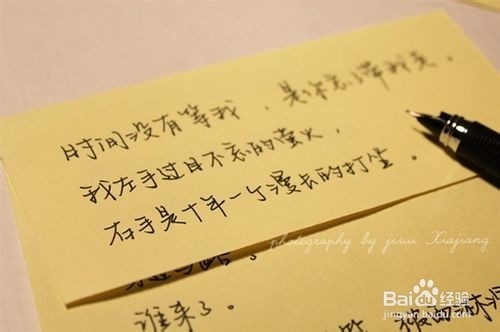 时间没有等我，是你忘了带我走。
我左手过目不忘的萤火，
右手是十年一个漫长的打坐。
photography by jisui Xiajiang
谁来了。
Baidu经验
jingyan.baidu.com